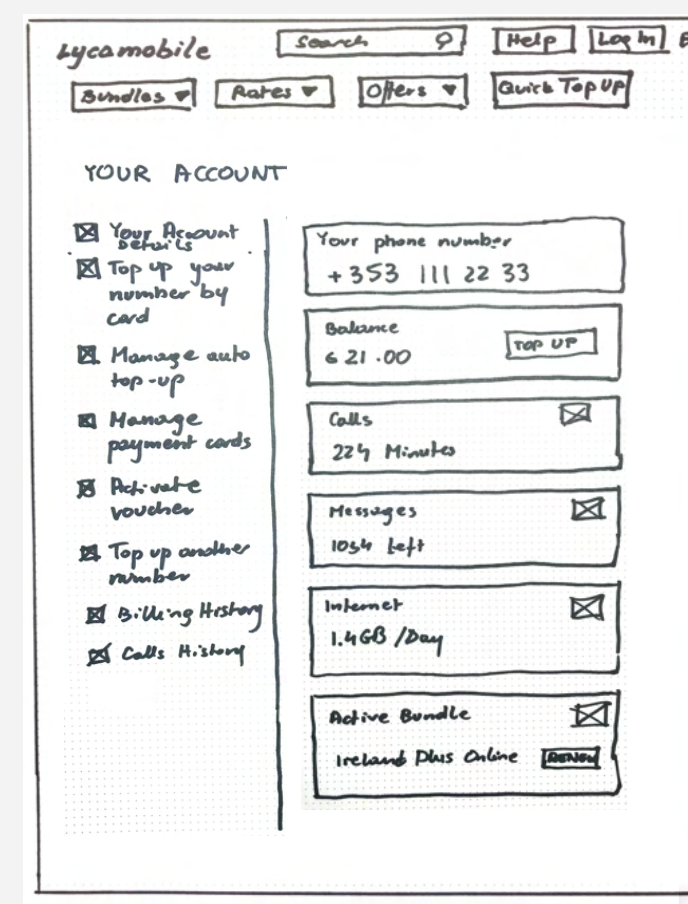 Lycamobile
Search
Help
Log In
E
Bundles
Rates
Offers
Quick Top UP
YOUR ACCOUNT
Your Account
Details
Top up your
number by
card
Manage auto
top-up
Manage
payment cards
Activate
voucher
Top up another
number
Billing History
Calls History
Your phone number
+353 111 22 33
Balance
€ 21.00
TOP UP
Calls
224 Minutes
Messages
1034 Left
Internet
1.4GB /Day
Active Bundle
Ireland Plus Online
RENEW